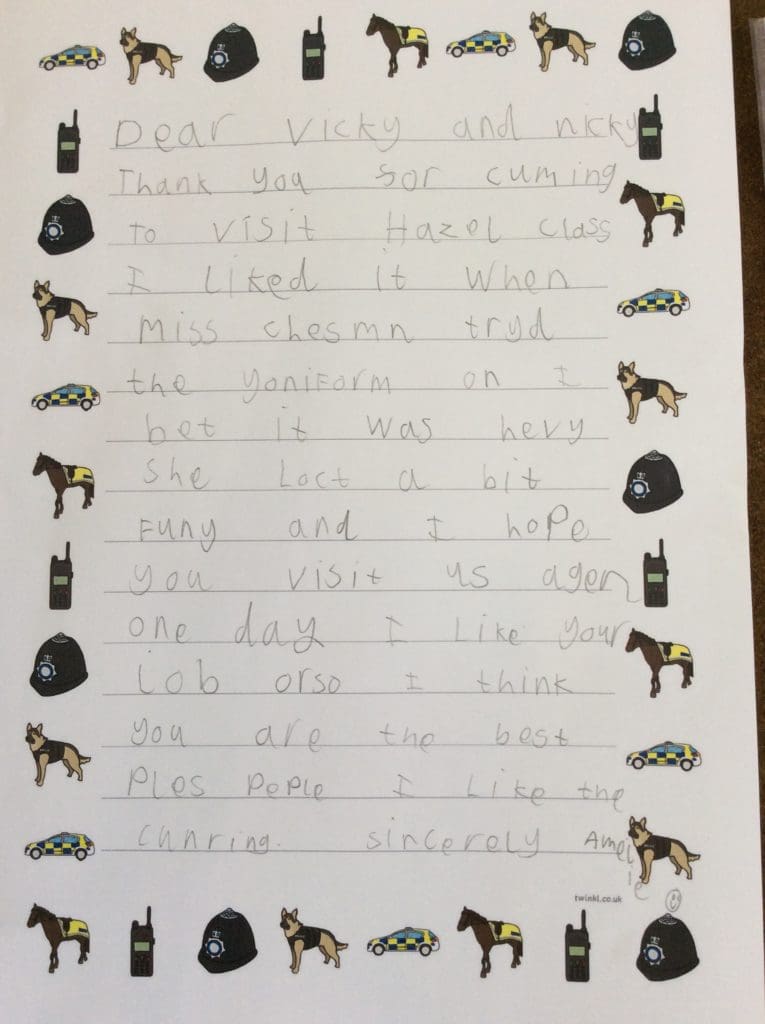 Dear Vicky and nicky
Thank you for cuming
to visit Hazel class
I liked it when
miss chesmn tryd
the yoniform on I
bet it was hevy
she loct a bit
Funy and I hope
you visit us agen
one day I like your
iob orso I think
you are the best
Ples peple I like the
cunring. sincerely Amelie
twinkl.co.uk